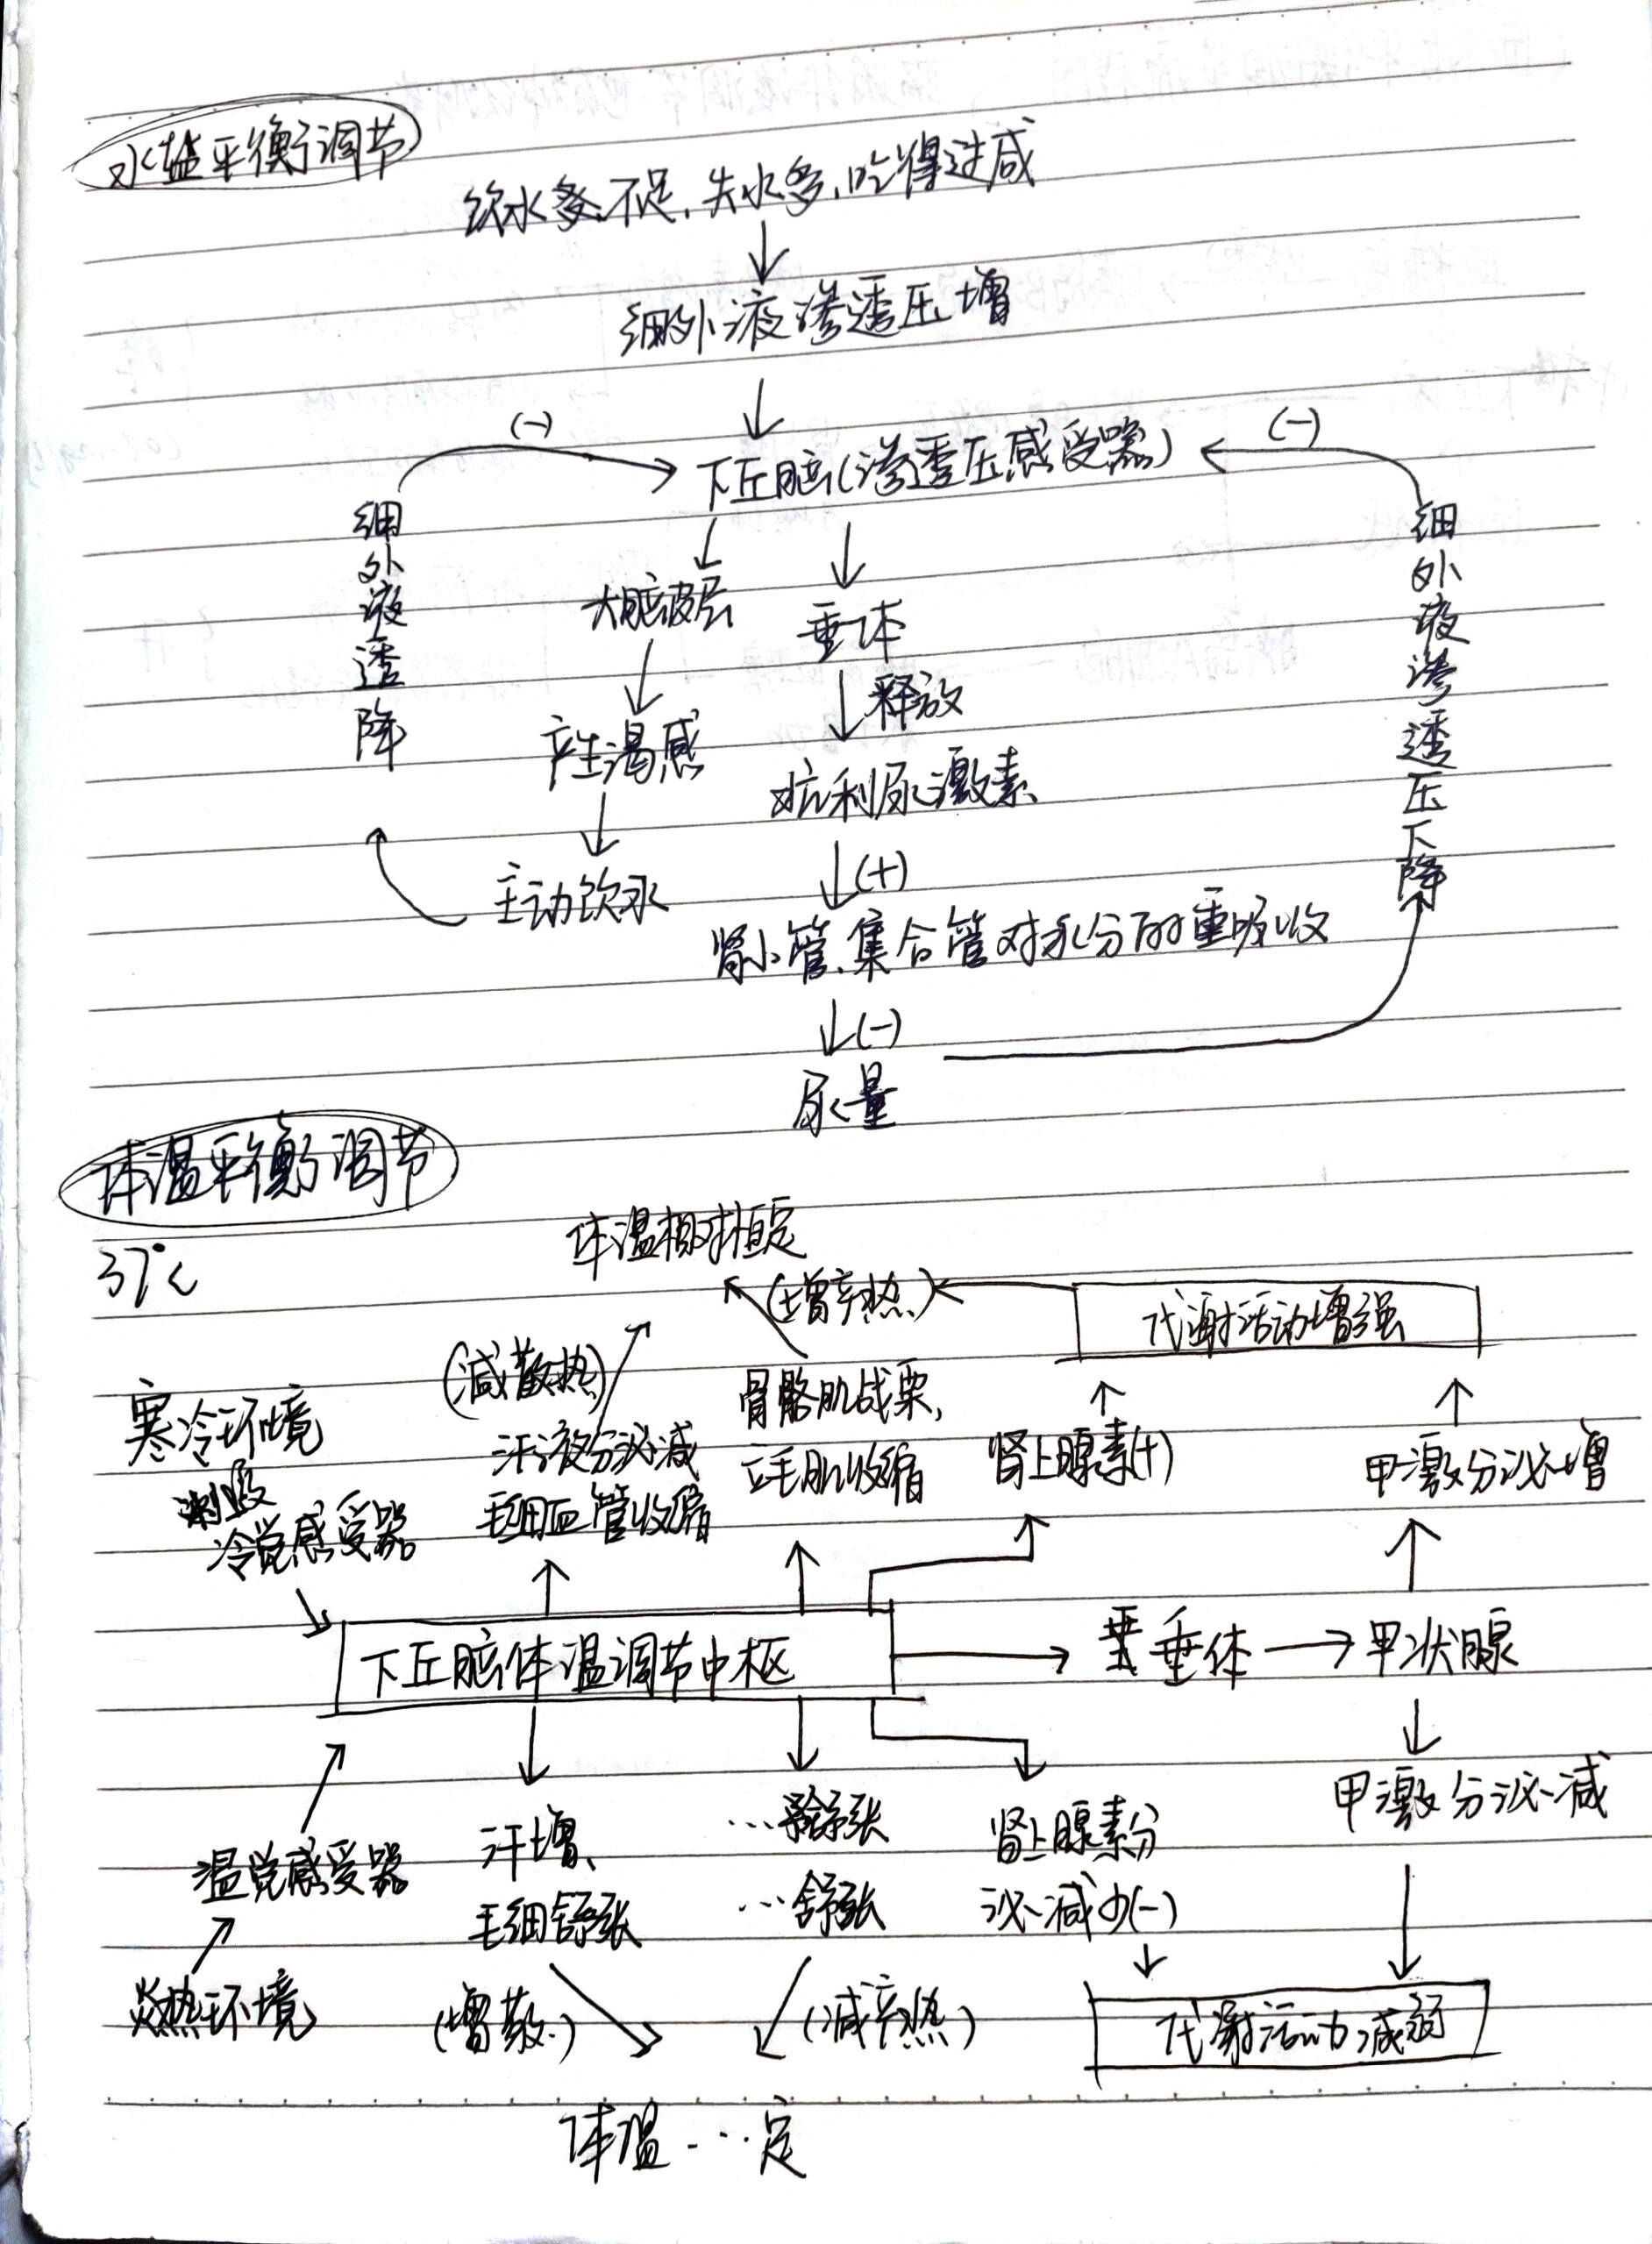 水盐平衡调节
饮水不足,失水多,吃得过咸
细外液渗透压增
(-)
(-)
下丘脑(渗透压感受器)
细外液透降
细外液渗透压下降
大脑皮层
垂体
释放
产生渴感
抗利尿激素
(+)
主动饮水
肾小管、集合管对水分的重吸收
(-)
尿量
体温平衡调节
37℃
体温相对恒定
(增产热)
代谢活动增强
(减散热)
寒冷环境
刺激
冷觉感受器
汗液分泌减
毛细血管收缩
骨骼肌战栗,
立毛肌收缩
肾上腺素(+)
甲激分泌增
下丘脑体温调节中枢
垂体
甲状腺
甲激分泌减
温觉感受器
炎热环境
汗增、
毛细舒张
…舒张
…舒张
肾上腺素分
泌减少(-)
(增散)
(减产热)
代谢活动减弱
体温…定